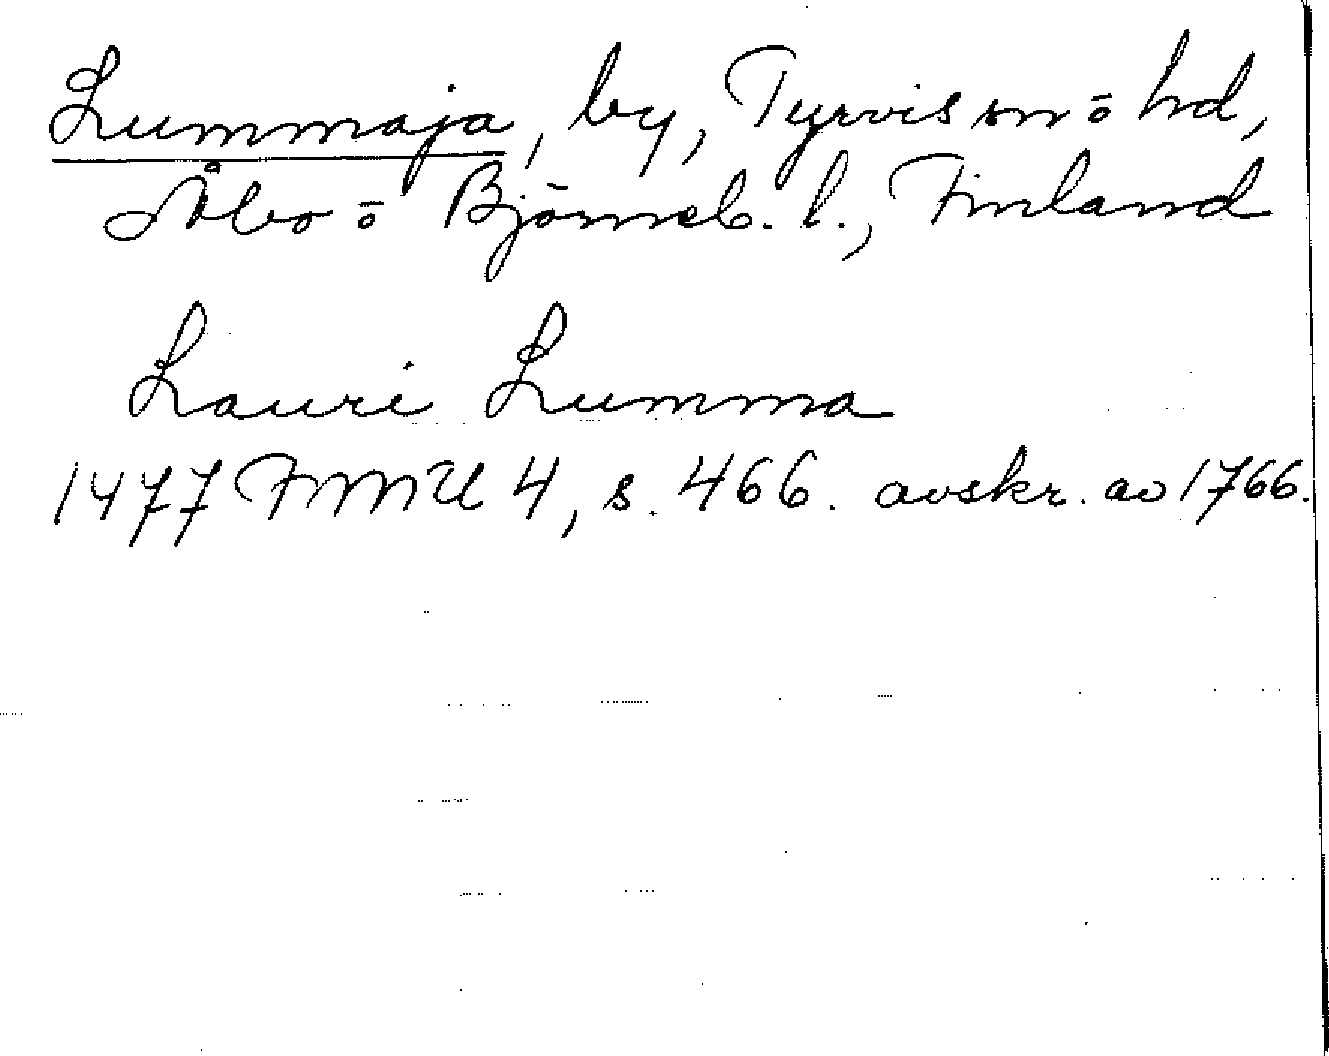 Lummaja, by, Tyrvis sn ō hd,
Åbo ō Björneb. l., Finland
Lauri Lumma
1477 FMU 4, s. 466. avskr. av 1766.